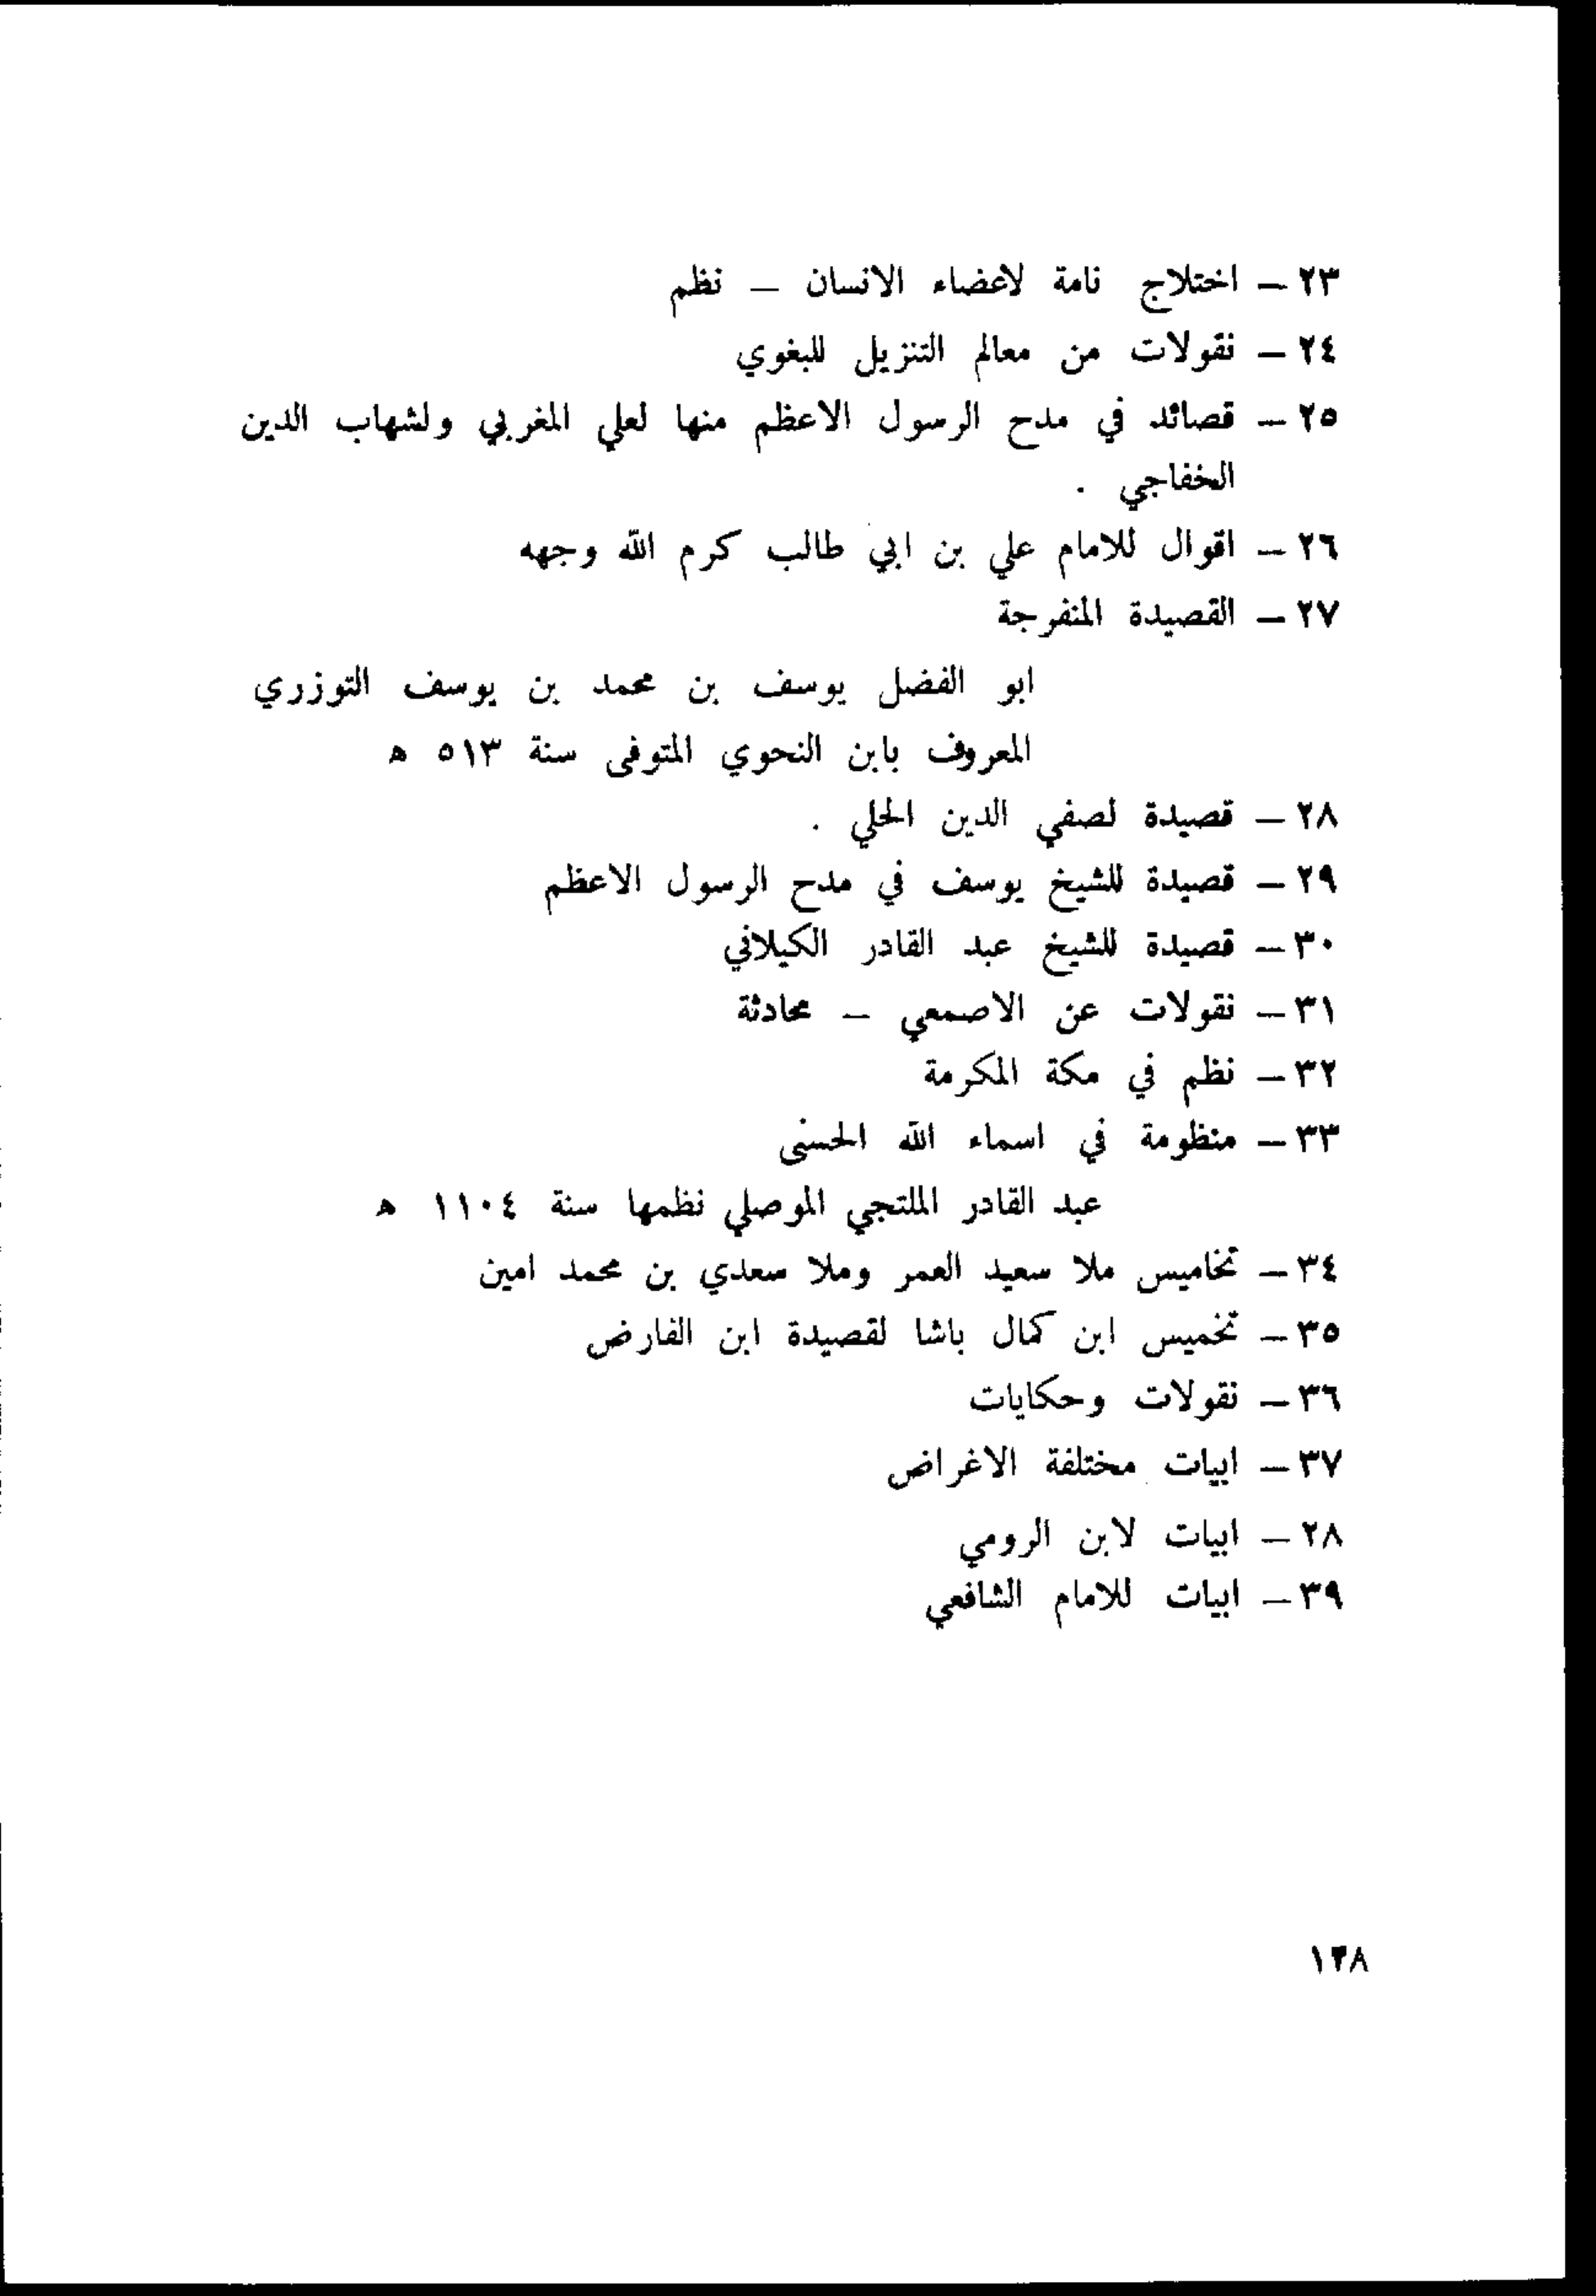 ٢٣ – اختلاج نامة لاعضاء الانسان – نظم
٢٤ – نقولات من معالم التنزيل للبغوي
٢٥ – قصائد في مدح الرسول الاعظم منها لعلي المغربي ولشهاب الدين
الخفاجي .
٢٦ – اقوال للامام علي بن ابي طالب كرم الله وجهه
٢٧ – القصيدة المنفرجة
ابو الفضل يوسف بن محمد بن يوسف التوزري
المعروف بابن النحوي المتوفى سنة ٥١٣ ه
٢٨ – قصيدة لصفي الدين الحلي .
٢٩ – قصيدة للشيخ يوسف في مدح الرسول الاعظم
٣٠ – قصيدة للشيخ عبد القادر الكيلاني
٣١ – نقولات عن الاصمعي – محادثة
٣٢ – نظم في مكة المكرمة
٣٣ – منظومة في اسماء الله الحسنى
عبد القادر الملتجي الموصلي نظمها سنة ١١٠٤ ه
٣٤ – تخاميس ملا سعيد العمر وملا سعدي بن محمد امين
٣٥ – تخميس ابن كمال باشا لقصيدة ابن الفارض
٣٦ – نقولات وحكايات
٣٧ – ابيات مختلفة الاغراض
٢٨ – ابيات لابن الرومي
٣٩ – ابيات للامام الشافعي
١٣٨